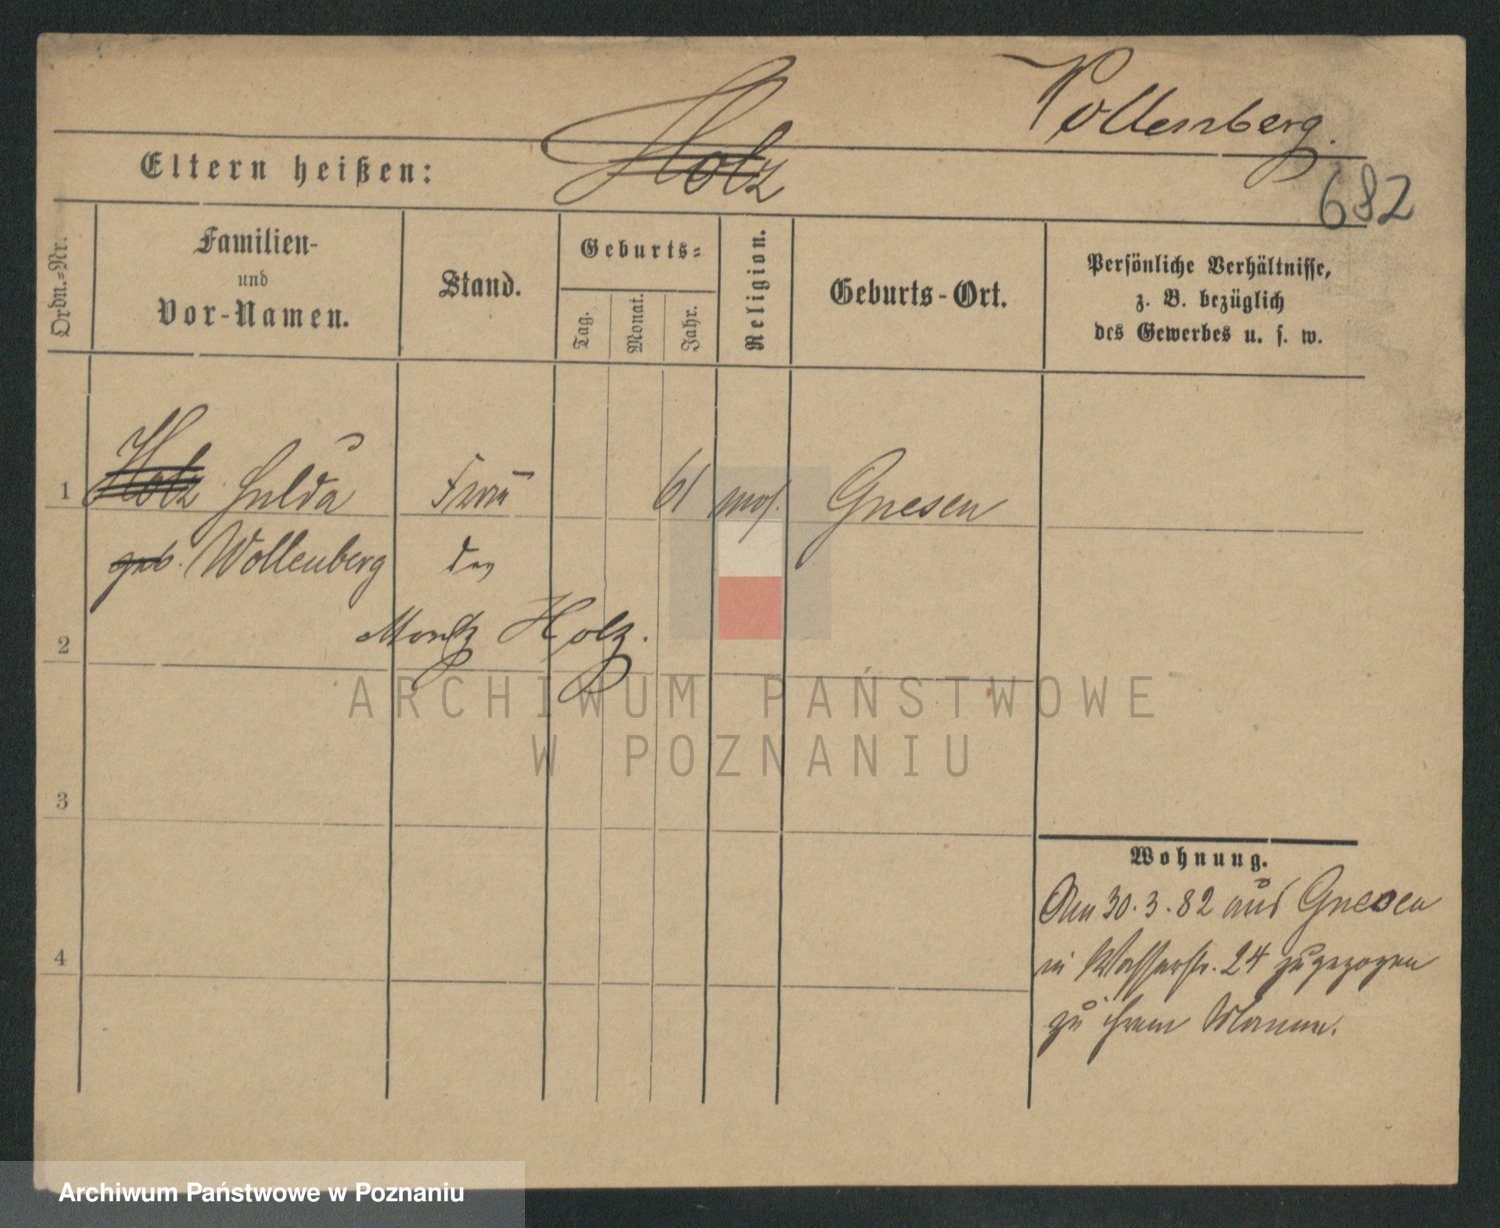 Wollenberg.
Holz
Eltern heißen:
682
Ordn.-Nr.
Familien-
und
Vor-Namen.
Stand.
Geburts-
Tag.
Monat.
Jahr.
Religion.
Geburts-Ort.
Persönliche Verhältnisse,
z. B. bezüglich
des Gewerbes u. s. w.
1 Holz Hulda Frau 61 mos. Gnesen
geb. Wollenberg des
Moritz Holz.
2
ARCHIWUM PAŃSTWOWE
W POZNANIU
3
Wohnung.
Am 30.3.82 aus Gnesen
in Wasserstr. 24 zugezogen
zu ihrem Manne.
4
Archiwum Państwowe w Poznaniu